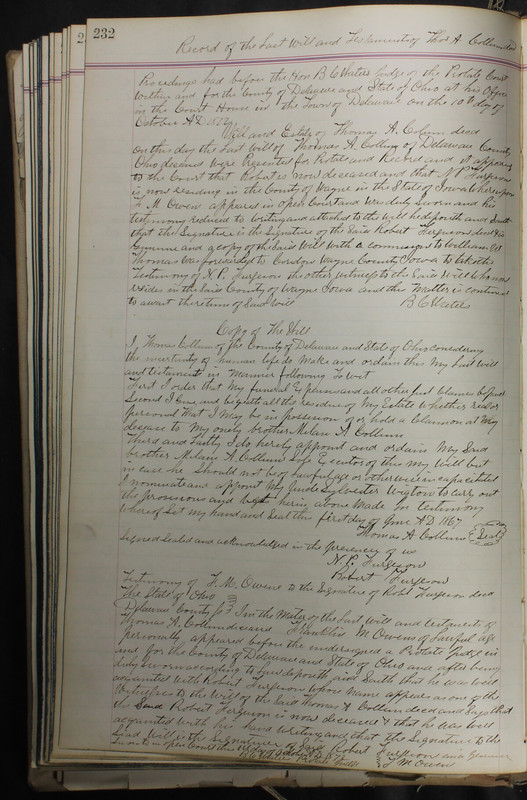 232
Record of the Last Will and Testaments of Thos A Collum dec
Procedings had before the Hon B C Waters Judge of the Probate Court
Within and for the County of Delaware and State of Ohio at his Office
in the Court House in the Town of Delaware on the 10th day of
October AD
Will and Estate of Thomas A. Collum decd
On this day the Last Will of Thomas A. Collum of Delaware County
Ohio deceased were Presented for Probate and Record and it appearing
to the Court that Robt is now deceased and that N P Furgeson
is now residing in the County of Wayne in the State of Iowa Whereupon
F. M. Owen appeared in open Court and was duly Sworn and his
testimony reduced to writing and attached to the Will
that the Signature is the Signature of the Said Robert Furgeson decd is
Genuine and a copy of the Said Will with a commission to William
Thomas was forwarded to Corydon Wayne County Iowa to take the
Testimony of N. P. Furgeson the other witness to the Said Will who now
resides in the Said County of Wayne Iowa and the Matter is continued
to await the return of Said Will B C Waters
Copy of The Will
I, Thomas Collum of the County of Delaware and State of Ohio considering
the uncertainty of human life do Make and ordain this My Last Will
and testament in Manner following To wit
First I order that My funeral Expenses and all other just claims be paid
Second I Give and bequeath all the residue of My Estate Whether real or
personal That I May be in possession of or hold a Claim on at My
decease to My only brother Milain A Collum
Third and Lastly I do hereby appoint and ordain My Said
brother Milain A. Collum Sole Executor of this my Will but
in case he Should not be of lawful age or otherwise incapacitated
I nominate and appoint My Uncle Sylvester Wigton to carry out
the provisions and herein above Made In testimony
Whereof Set my hand and Seal this first day of June AD 1867
Thomas A Collum Seal
Signed Sealed and acknowledged in the presence of us
N. P. Furgeson
Robert Furgeson
Testimony of F. M. Owens to the Signature of Robt Furgeson decd
The State of Ohio
Delaware County SS In the Matter of the Last Will and testament of
Thomas A. Collum deceased Franklin M Owens of lawful age
personally appeared before the undersigned a Probate Judge in
and for the County of Delaware and State of Ohio and after being
duly Sworn according to law deposeth and Saith that he was well
acquainted with Robert Furgeson whose name appears as one of the
Witnesses to the Will of the Said Thomas A Collum decd and Says that
the Said Robert Furgeson is now deceased & that he was well
acquainted with his hand writing and that the Signature to the
Said Will is the Signature of Said Robert Furgeson and is Genuine
Sworn to in open Court this 10 day of October F M Owen